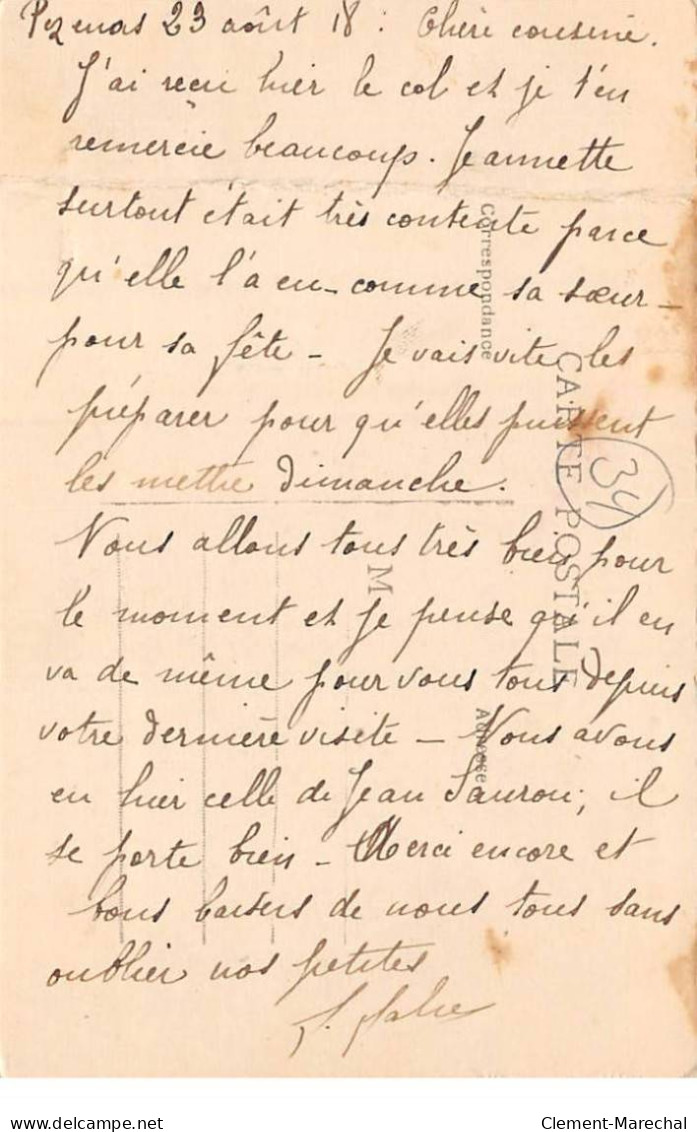 Pezenas 23 août 18 : Chère cousine.
J'ai reçu hier le col et je t'en
remercie beaucoup. Jeannette
surtout était très contente parce
qu'elle l'a eu - comme sa sœur -
pour sa fête - Je vais vite les
préparer pour qu'elles puissent
les mettre dimanche.
Nous allons tous très bien pour
le moment et je pense qu'il en
va de même pour vous tous depuis
votre dernière visite - Nous avons
eu hier celle de Jean Sauron; il
se porte bien - Merci encore et
bons baisers de nous tous sans
oublier nos petites
Correspondance
CARTE POSTALE
34
M
Adresse
www.delcampe.net
Clement-Marechal